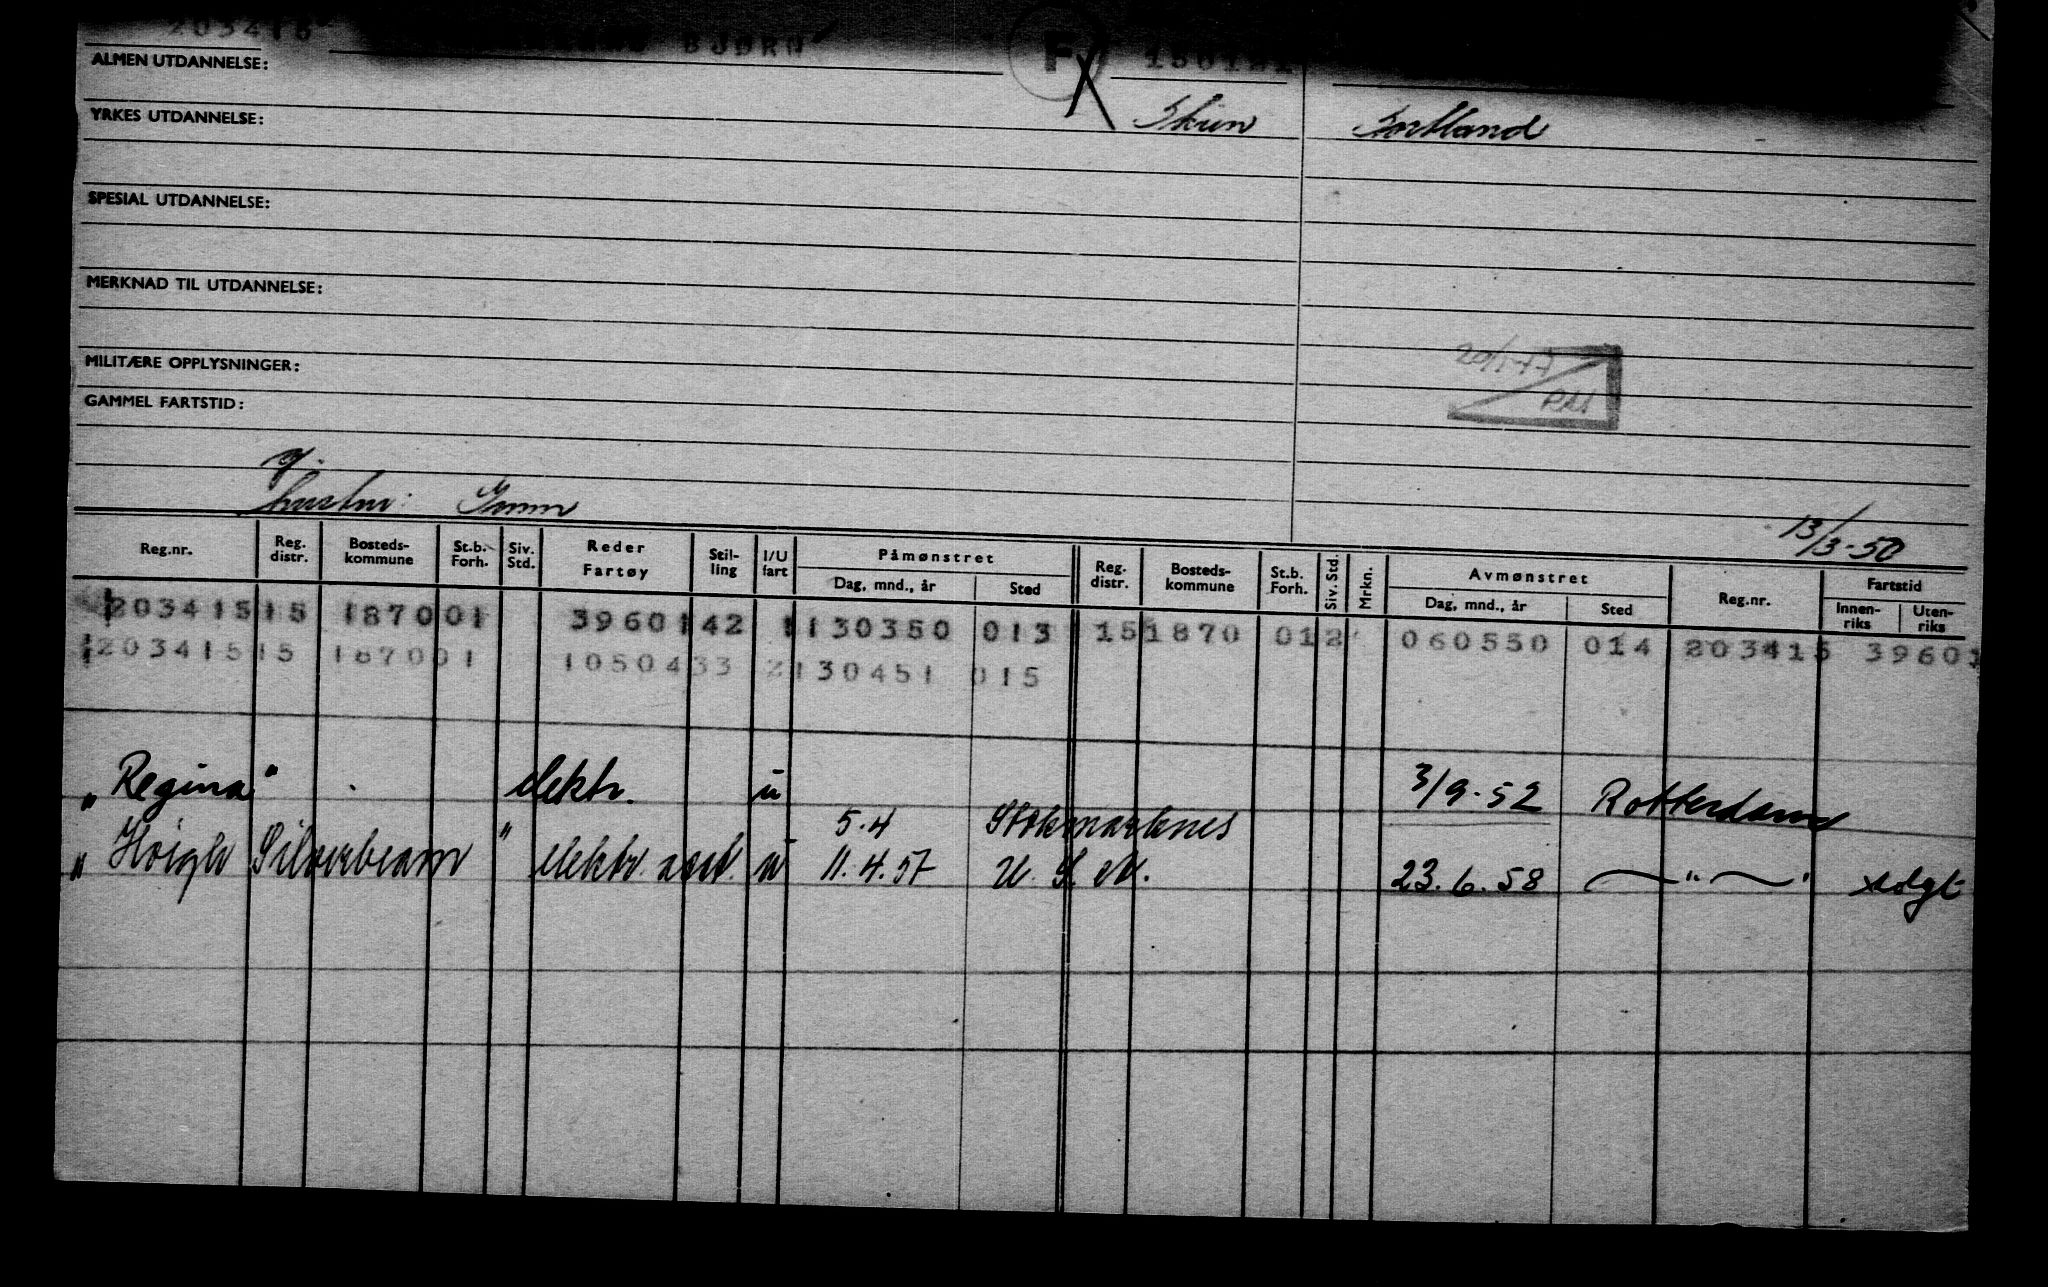 BJØRN F
ALMEN UTDANNELSE:
YRKES UTDANNELSE: Skien Fortland
SPESIAL UTDANNELSE:
MERKNAD TIL UTDANNELSE:
MILITÆRE OPPLYSNINGER:
GAMMEL FARTSTID:
13/3-50
Reg.nr. Reg. distr. Bosteds-kommune St.b. Forh. Siv. Std. Reder Fartøy Stil-ling I/U fart Påmønstret Dag, mnd., år Sted Reg. distr. Bosteds-kommune St.b. Forh. Siv. Std. Mrkn. Avmønstret Dag, mnd., år Sted Reg.nr. Fartstid Innen-riks Uten-riks
203415 15 1870 01 39601 42 1 130350 013 15 1870 01 2 060550 014 203415 39601
203415 15 1870 01 10504 33 2 130451 015
„Regina" elektr. u 3/9-52 Rotterdam
5.4 Stokmarknes
„Höegh Silverbeam" elektr. asst. u 11.4.57 U.S.A. 23.6.58 — " — solgt